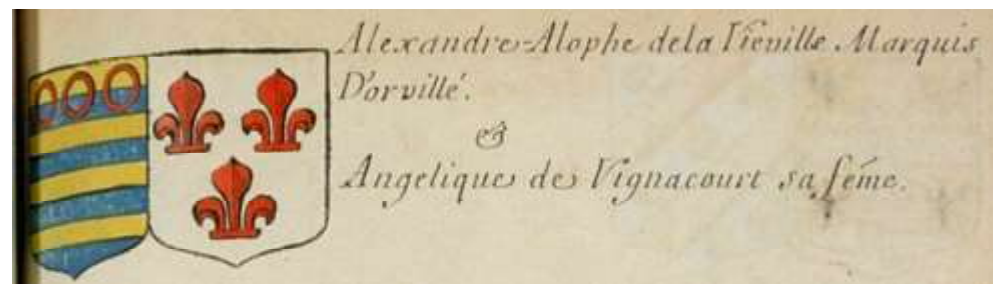 Alexandre-Alophe dela Vieville Marquis
D'orvillé.
&
Angelique de Vignacourt sa féme.